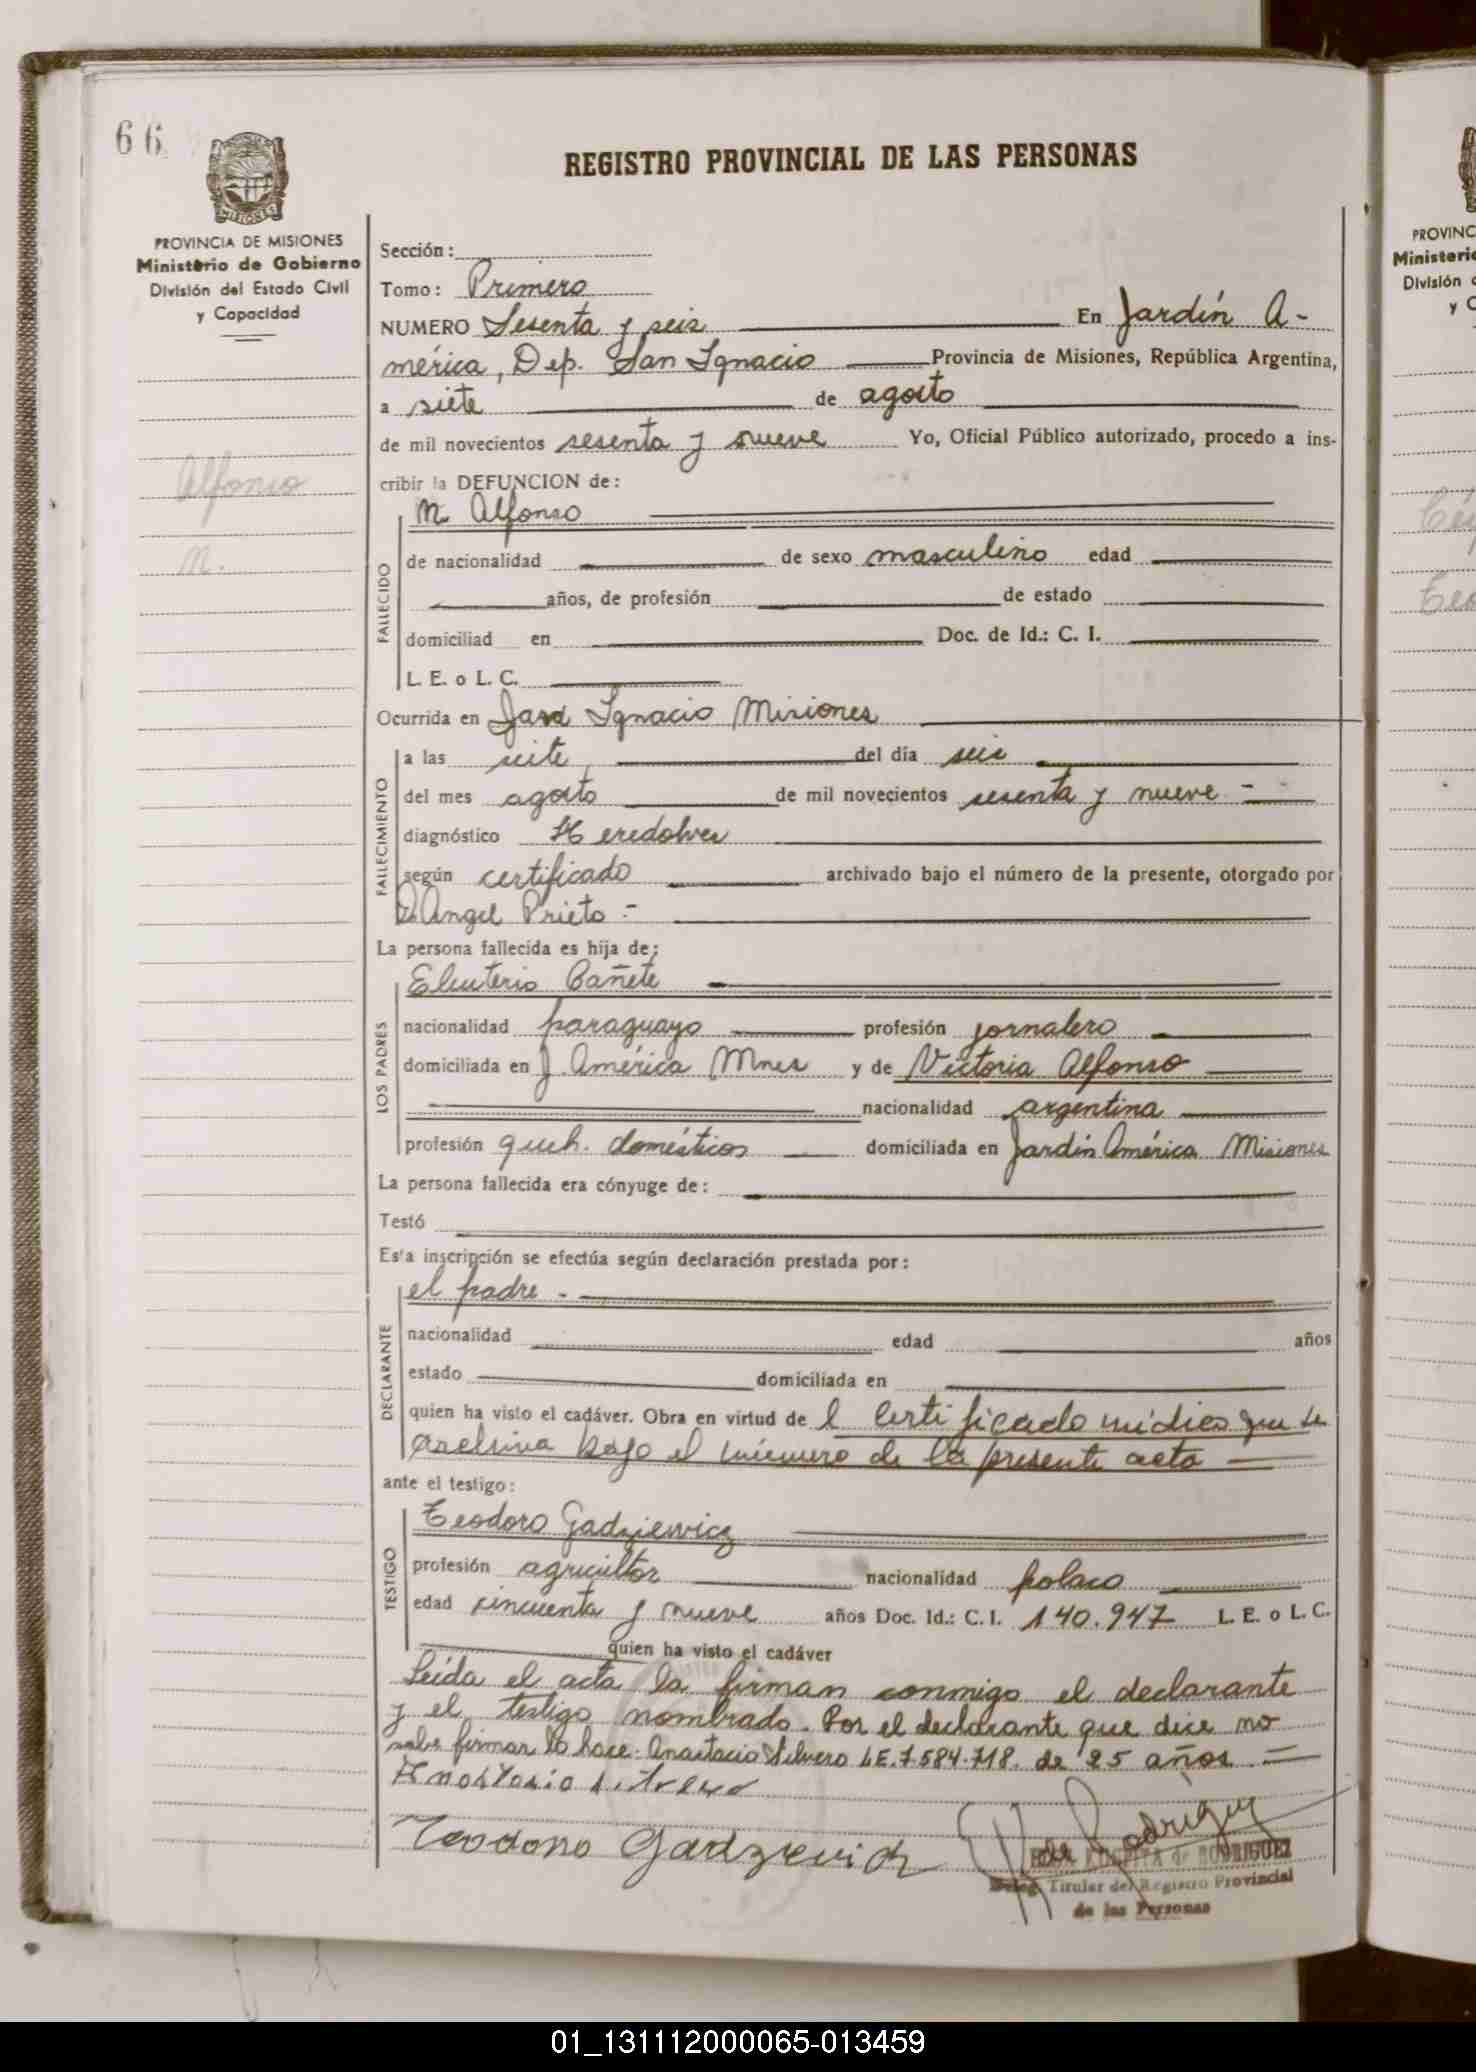 66
REGISTRO PROVINCIAL DE LAS PERSONAS
MISIONES
PROVINCIA DE MISIONES
Ministerio de Gobierno
División del Estado Civil
y Capacidad
Alfonso
N.
Sección:
Tomo: Primero
NUMERO Sesenta y seis En Jardín A-
mérica, Dep. San Ignacio Provincia de Misiones, República Argentina,
a siete de agosto
de mil novecientos sesenta y nueve Yo, Oficial Público autorizado, procedo a ins-
cribir la DEFUNCION de:
N. Alfonso
FALLECIDO
de nacionalidad de sexo masculino edad
años, de profesión de estado
domiciliad en Doc. de Id.: C. I.
L. E. o L. C.
Ocurrida en Ignacio Misiones
FALLECIMIENTO
a las siete del día seis
del mes agosto de mil novecientos sesenta y nueve -
diagnóstico
según certificado archivado bajo el número de la presente, otorgado por
Angel Prieto -
La persona fallecida es hija de:
LOS PADRES
Eleuterio Cañete
nacionalidad paraguayo profesión jornalero
domiciliada en J. América Mnes y de Victoria Alfonso
nacionalidad argentina
profesión queh. domésticos domiciliada en Jardín América Misiones
La persona fallecida era cónyuge de:
Testó
Esta inscripción se efectúa según declaración prestada por:
DECLARANTE
el padre -
nacionalidad edad años
estado domiciliada en
quien ha visto el cadáver. Obra en virtud de l certificado médico que se
archiva bajo el número de la presente acta
ante el testigo:
TESTIGO
Teodoro Gadziewicz
profesión agricultor nacionalidad polaco
edad cincuenta y nueve años Doc. Id.: C. I. 140.947 L. E. o L. C.
quien ha visto el cadáver
Leída el acta la firman conmigo el declarante
y el testigo nombrado. Por el declarante que dice no
sabe firmar lo hace: Anastacio Silvero L.E. 7.584.718. de 25 años. =
Teodoro Gadzievich
de Rodriguez
de RODRIGUEZ
Deleg. Titular del Registro Provincial
de las Personas
PROVINC
Ministerio
División d
y C
01_131112000065-013459